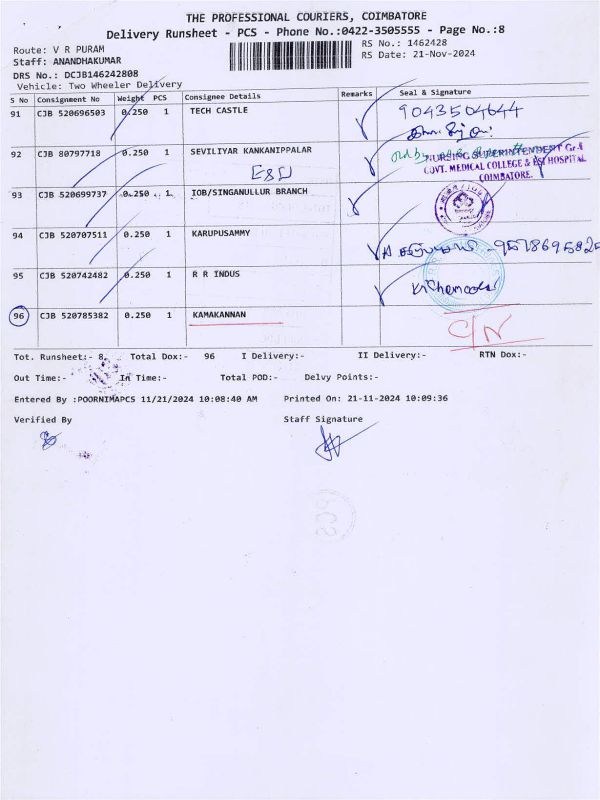 THE PROFESSIONAL COURIERS, COIMBATORE
Delivery Runsheet - PCS - Phone No.:0422-3505555 - Page No.:8
Route: V R PURAM
RS No.: 1462428
Staff: ANANDHAKUMAR
RS Date: 21-Nov-2024
DRS No.: DCJB146242808
Vehicle: Two Wheeler Delivery
S No Consignment No Weight PCS Consignee Details Remarks Seal & Signature
91 CJB 520696503 0.250 1 TECH CASTLE 9043504644
92 CJB 80797718 0.250 1 SEVILIYAR KANKANIPPALAR
NURSING SUPERINTENDENT Gr-I
GOVT. MEDICAL COLLEGE & ESI HOSPITAL
COIMBATORE.
93 CJB 520699737 0.250 1 IOB/SINGANULLUR BRANCH
94 CJB 520707511 0.250 1 KARUPUSAMMY
95 CJB 520742482 0.250 1 R R INDUS
96 CJB 520785382 0.250 1 KAMAKANNAN C/N
Tot. Runsheet:- 8 Total Dox:- 96 I Delivery:- II Delivery:- RTN Dox:-
Out Time:- In Time:- Total POD:- Delvy Points:-
Entered By :POORNIMAPCS 11/21/2024 10:08:40 AM Printed On: 21-11-2024 10:09:36
Verified By Staff Signature
PCS